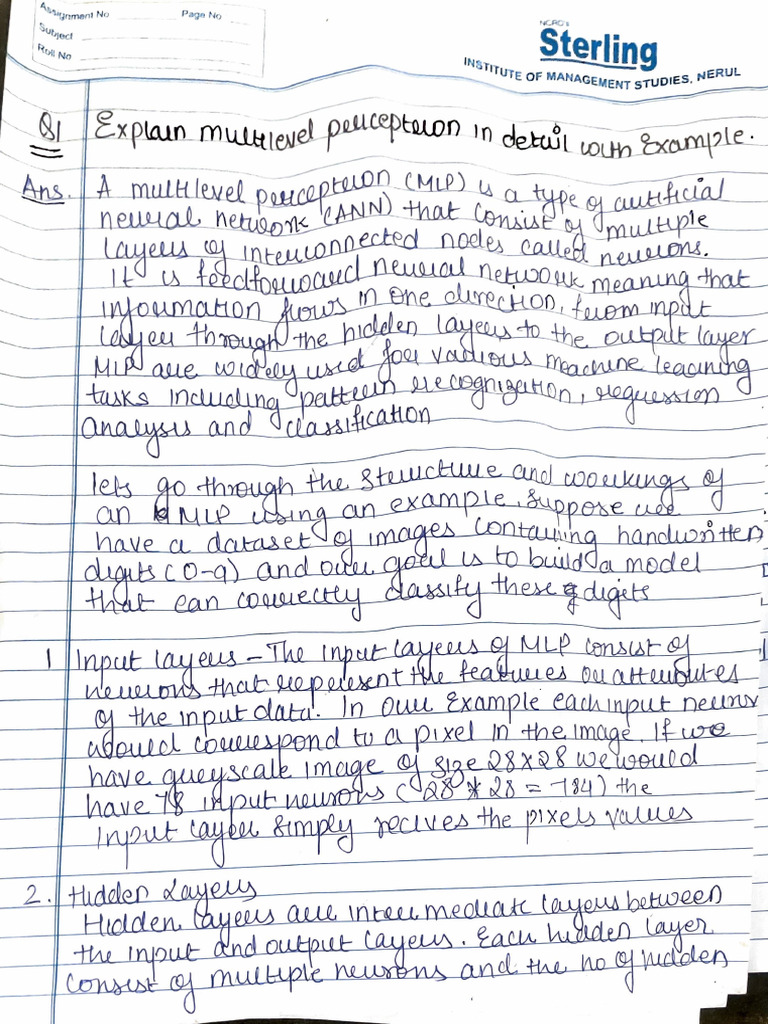 Assignment No Page No
Subject
Roll No
NCRD's
Sterling
INSTITUTE OF MANAGEMENT STUDIES, NERUL
Q1 Explain multilevel perceptron in detail with Example.
Ans. A multilevel perceptron (MLP) is a type of artificial
neural network (ANN) that consist of multiple
layers of interconnected nodes called neurons.
It is feedforward neural network meaning that
information flows in one direction, from input
layer through the hidden layers to the output layer
MLP are widely used for various machine learning
tasks including pattern recognization, regression
analysis and classification
lets go through the structure and workings of
an MLP using an example. Suppose we
have a dataset of images containing handwritten
digits (0-9) and our goal is to build a model
that can correctly classify these digits
1 Input layers - The input layers of MLP consist of
neurons that represent the features or attributes
of the input data. In our Example each input neuron
would correspond to a pixel in the image. If we
have greyscale image of size 28x28 we would
have 78 input neurons (28 * 28 = 784) the
input layer simply recives the pixels values
2. Hidden Layers
Hidden layers are intermediate layers between
the input and output layers. Each hidden layer
consist of multiple neurons and the no of hidden